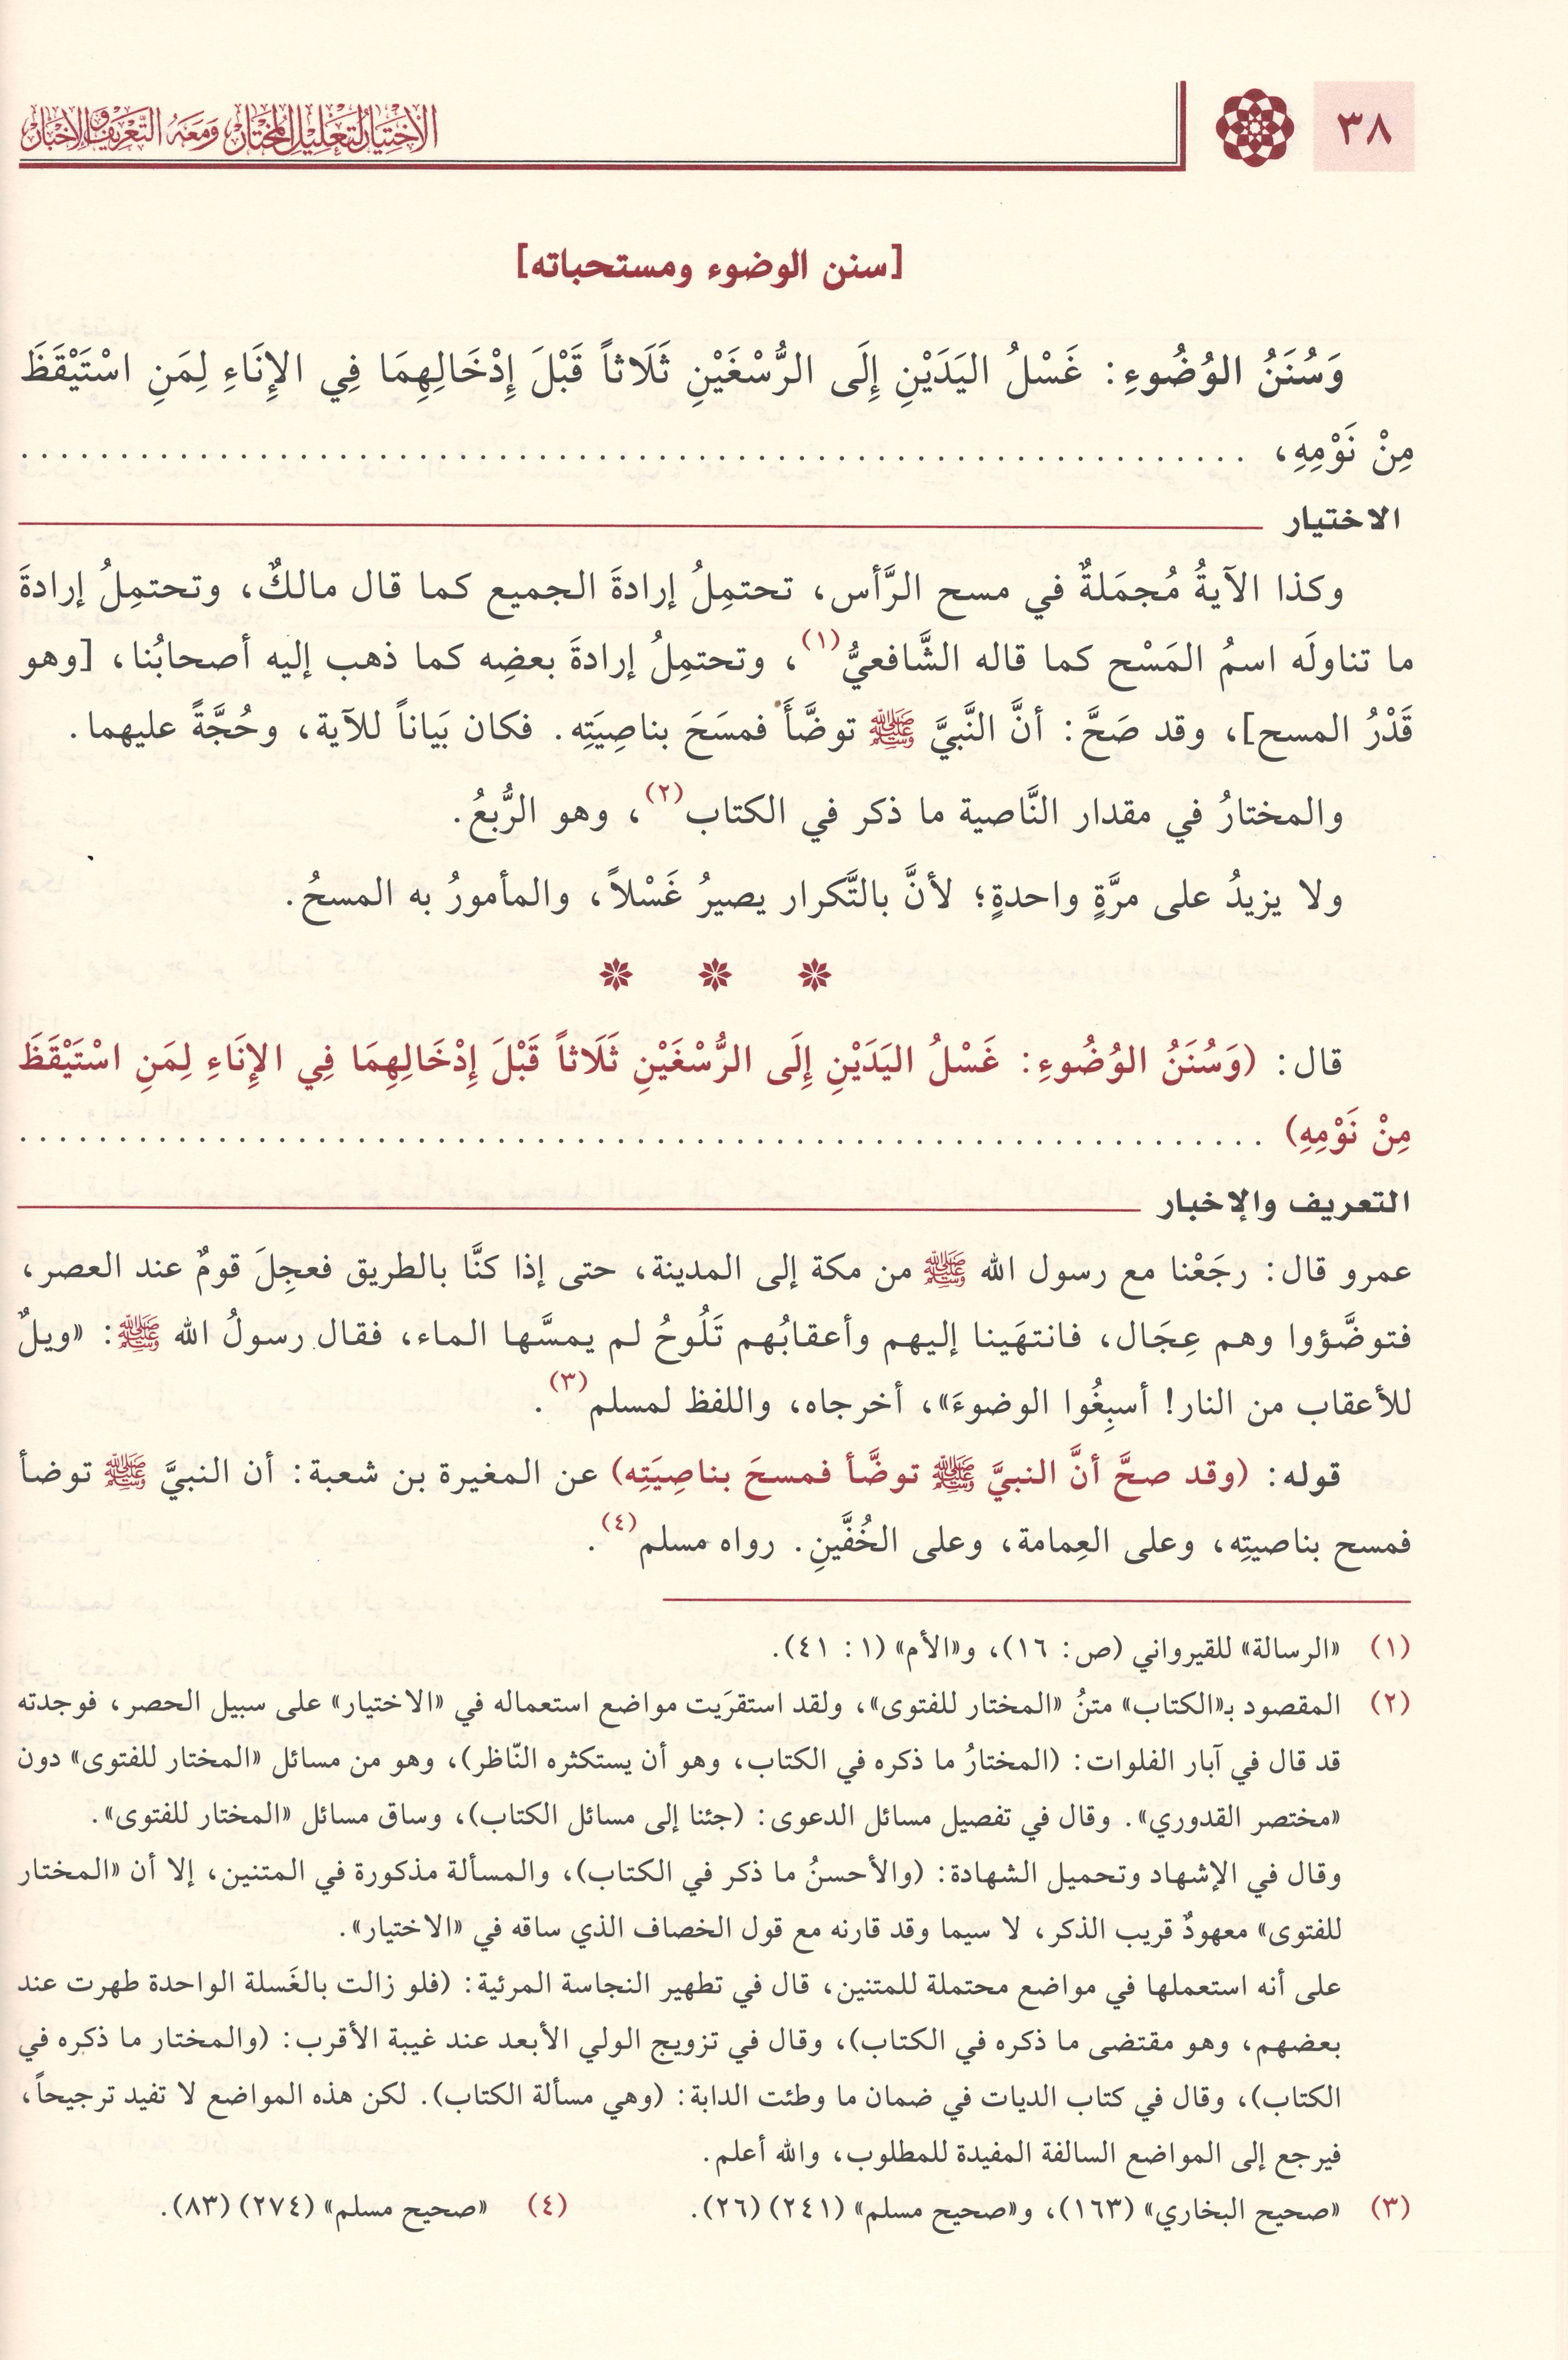 ٣٨
الاختيار لتعليل المختار ومعه التعريف والإخبار
[سنن الوضوء ومستحباته]
وَسُنَنُ الوُضُوءِ: غَسْلُ اليَدَيْنِ إِلَى الرُّسْغَيْنِ ثَلَاثاً قَبْلَ إِدْخَالِهِمَا فِي الإِنَاءِ لِمَنِ اسْتَيْقَظَ
مِنْ نَوْمِهِ، ..........................................................................
الاختيار
وكذا الآيةُ مُجمَلةٌ في مسح الرَّأس، تحتمِلُ إرادةَ الجميع كما قال مالكٌ، وتحتمِلُ إرادةَ
ما تناولَه اسمُ المَسْح كما قاله الشَّافعيُّ(١)، وتحتمِلُ إرادةَ بعضِه كما ذهب إليه أصحابُنا، [وهو
قَدْرُ المسح]، وقد صَحَّ: أنَّ النَّبيَّ ﷺ توضَّأَ فمسَحَ بناصِيَتِه. فكان بَياناً للآية، وحُجَّةً عليهما.
والمختارُ في مقدار النَّاصية ما ذكر في الكتاب(٢)، وهو الرُّبعُ.
ولا يزيدُ على مرَّةٍ واحدةٍ؛ لأنَّ بالتَّكرار يصيرُ غَسْلاً، والمأمورُ به المسحُ.
قال: (وَسُنَنُ الوُضُوءِ: غَسْلُ اليَدَيْنِ إِلَى الرُّسْغَيْنِ ثَلَاثاً قَبْلَ إِدْخَالِهِمَا فِي الإِنَاءِ لِمَنِ اسْتَيْقَظَ
مِنْ نَوْمِهِ) ..........................................................................
التعريف والإخبار
عمرو قال: رجَعْنا مع رسول الله ﷺ من مكة إلى المدينة، حتى إذا كنَّا بالطريق فعجِلَ قومٌ عند العصر،
فتوضَّؤوا وهم عِجَال، فانتهَينا إليهم وأعقابُهم تَلُوحُ لم يمسَّها الماء، فقال رسولُ الله ﷺ: «ويلٌ
للأعقاب من النار! أسبِغُوا الوضوءَ»، أخرجاه، واللفظ لمسلم(٣).
قوله: (وقد صحَّ أنَّ النبيَّ ﷺ توضَّأ فمسحَ بناصِيَتِه) عن المغيرة بن شعبة: أن النبيَّ ﷺ توضأ
فمسح بناصيتِه، وعلى العِمامة، وعلى الخُفَّينِ. رواه مسلم(٤).
(١) «الرسالة» للقيرواني (ص: ١٦)، و«الأم» (١: ٤١).
(٢) المقصود بـ«الكتاب» متنُ «المختار للفتوى»، ولقد استقرَيت مواضع استعماله في «الاختيار» على سبيل الحصر، فوجدته
قد قال في آبار الفلوات: (المختارُ ما ذكره في الكتاب، وهو أن يستكثره النّاظر)، وهو من مسائل «المختار للفتوى» دون
«مختصر القدوري». وقال في تفصيل مسائل الدعوى: (جئنا إلى مسائل الكتاب)، وساق مسائل «المختار للفتوى».
وقال في الإشهاد وتحميل الشهادة: (والأحسنُ ما ذكر في الكتاب)، والمسألة مذكورة في المتنين، إلا أن «المختار
للفتوى» معهودٌ قريب الذكر، لا سيما وقد قارنه مع قول الخصاف الذي ساقه في «الاختيار».
على أنه استعملها في مواضع محتملة للمتنين، قال في تطهير النجاسة المرئية: (فلو زالت بالغَسلة الواحدة طهرت عند
بعضهم، وهو مقتضى ما ذكره في الكتاب)، وقال في تزويج الولي الأبعد عند غيبة الأقرب: (والمختار ما ذكره في
الكتاب)، وقال في كتاب الديات في ضمان ما وطئت الدابة: (وهي مسألة الكتاب). لكن هذه المواضع لا تفيد ترجيحاً،
فيرجع إلى المواضع السالفة المفيدة للمطلوب، والله أعلم.
(٣) «صحيح البخاري» (١٦٣)، و«صحيح مسلم» (٢٤١) (٢٦).
(٤) «صحيح مسلم» (٢٧٤) (٨٣).